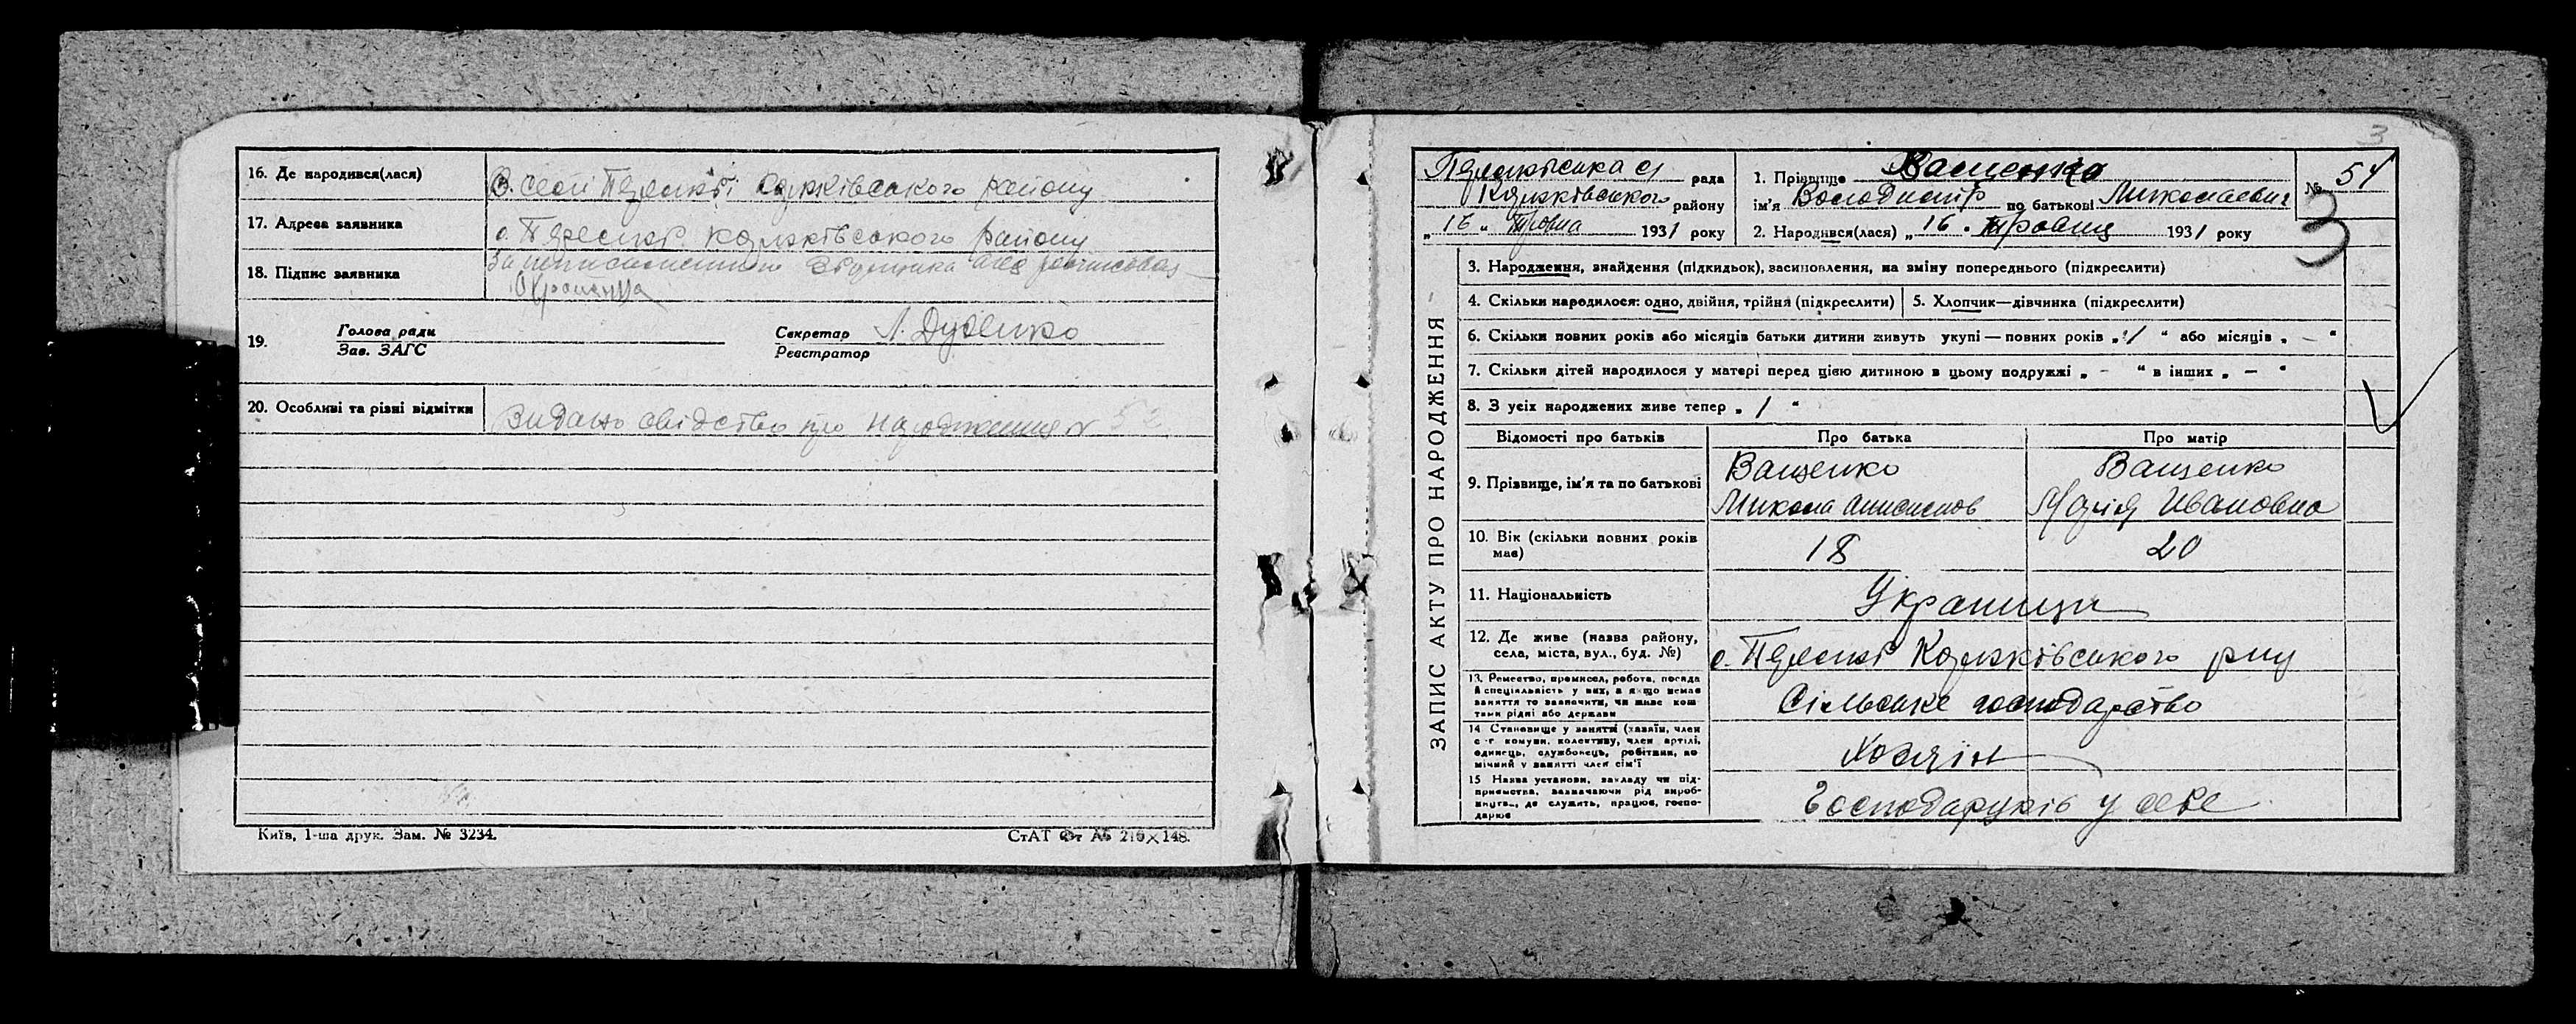 16. Де народився(лася) В. селі Карлівського району
17. Адреса заявника с. району
18. Підпис заявника За
19. Голова ради
Зав. ЗАГС
Секретар Л. Дуденко
Реєстратор
20. Особливі та різні відмітки Видано свідоство про народження № 52
Київ, 1-ша друк. Зам. № 3234.
СтАТ Фт А5 210×148.
3
рада
району
„ 16 „ травня 1931 року
1. Прізвище Ващенко
ім'я Володимир по батькові Миколаевич
2. Народився(лася) „ 16 „ травня 1931 року
№ 54
3
ЗАПИС АКТУ ПРО НАРОДЖЕННЯ
3. Народження, знайдення (підкидьок), засиновлення, на зміну попереднього (підкреслити)
4. Скільки народилося: одно, двійня, трійня (підкреслити)
5. Хлопчик—дівчинка (підкреслити)
6. Скільки повних років або місяців батьки дитини живуть укупі — повних років „ 1 “ або місяців „ — “
7. Скільки дітей народилося у матері перед цією дитиною в цьому подружжі „ - “ в інших „ — “
8. З усіх народжених живе тепер „ 1 “
Відомості про батьків
Про батька
Про матір
9. Прізвище, ім'я та по батькові
Ващенко
Микола
Ващенко
Марія Ивановна
10. Вік (скільки повних років має)
18
20
11. Національність
Украинци
12. Де живе (назва району,
села, міста, вул., буд. №)
с. рну
13. Ремество, промисел, робота, посада
й спеціяльність у них, а якщо немає
заняття то зазначити, чи живе кош
тами рідні або держави
Сільське господарство
14 Становище у занятті (хазяїн, член
с.-г комуни, колективу, член артілі,
одинець, службовець, робітник, по
мічний у занятті член сім'ї
Хозяїн
15 Назва установи, закладу чи під-
приємства, зазначаючи рід вироб-
ництв., де служить, працює, госпо-
дарює
у себе